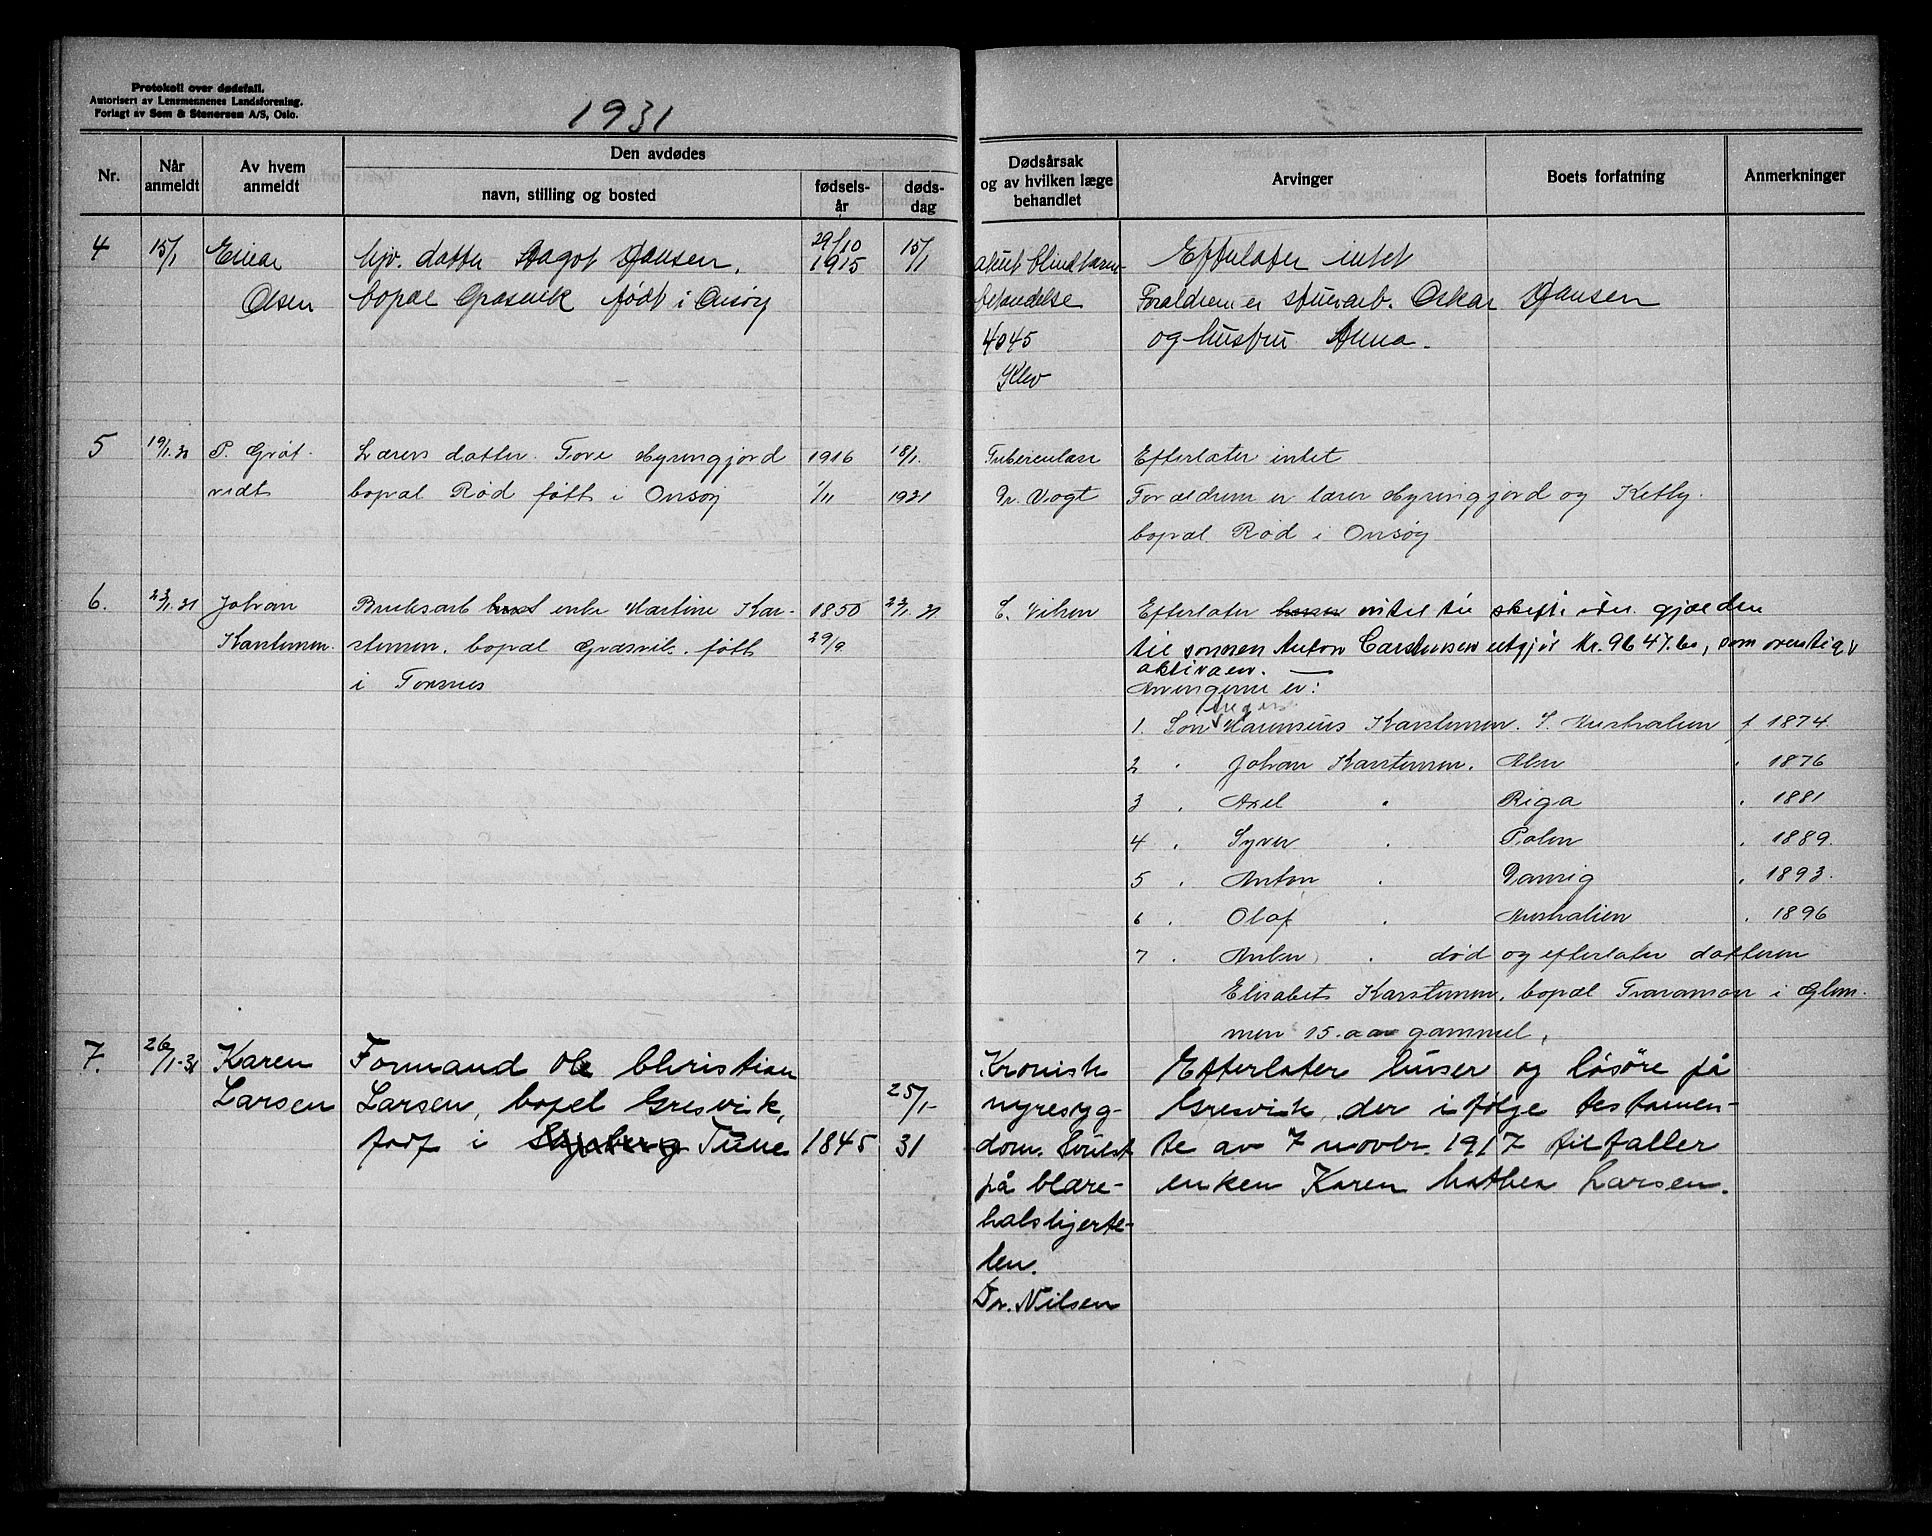 Protokoll over dødsfall.
Autorisert av Lensmennenes Landsforening.
Forlagt av Sem & Stenersen A/S, Oslo.
1931
Nr.
Når anmeldt
Av hvem anmeldt
Den avdødes
navn, stilling og bosted
fødsels-år
døds-dag
Dødsårsak og av hvilken læge behandlet
Arvinger
Boets forfatning
Anmerkninger
4 15/1 Einar hjv. datter Aagot Jansen, 29/10 1915 15/1
Olsen bopæl Græsvik født i Onsøy
akut blindtarm-
betændelse
4045
Kliv
Efterlater intet
Forældrene er stuerarb. Oskar Jansen
og hustru Anna.
5 19/1.31 P. Grøt- Lærers datter Tove Myrengjord 1916 18/1.
vedt bopæl Rød født i Onsøy 1/11 1931
Tuberculose
Dr. Vogt
Efterlater intet
Forældrene er lærer Myrengjord og Ketty.
bopæl Rød i Onsøy
6. 23/1.31 Johan Bruksarb. enke Martine Kar- 1850 23/1.31
Karstensen. stensen, bopæl Græsvik. født 29/9
i Torsnes
C. Vihen
Efterlater intet til skifte idet gjælden
til sønnen Anton Carstensen utgjør Kr. 9647.60, som overstiger
aktivaen.
Arvingerne er:
1. Søn Karensius Karstensen. S. Australien f 1874.
2 " Johan Karstensen. Alsn " 1876
3 " Axel " Riga " 1881
4 " Syver " Polen " 1889.
5 " Anton " Danzig " 1893.
6 " Olaf " Australien " 1896
7 " " død og efterlater datteren
Elisabeth Karstensen, bopæl Traramoen i Glem-
men 15 aar gammel,
7. 26/1-31 Karen Formand Ole Christian
Larsen Larsen, bopel Gresvik, 25/1-
født i Tune 1845 31
Kronisk
nyresyg-
dom. Svulst
på blære-
halskjerte-
len.
Dr. Nilsen
Efterlater huser og løsøre på
Gresvik, der ifølge testamen-
te av 7 novbr. 1917 tilfaller
enken Karen Mathea Larsen.